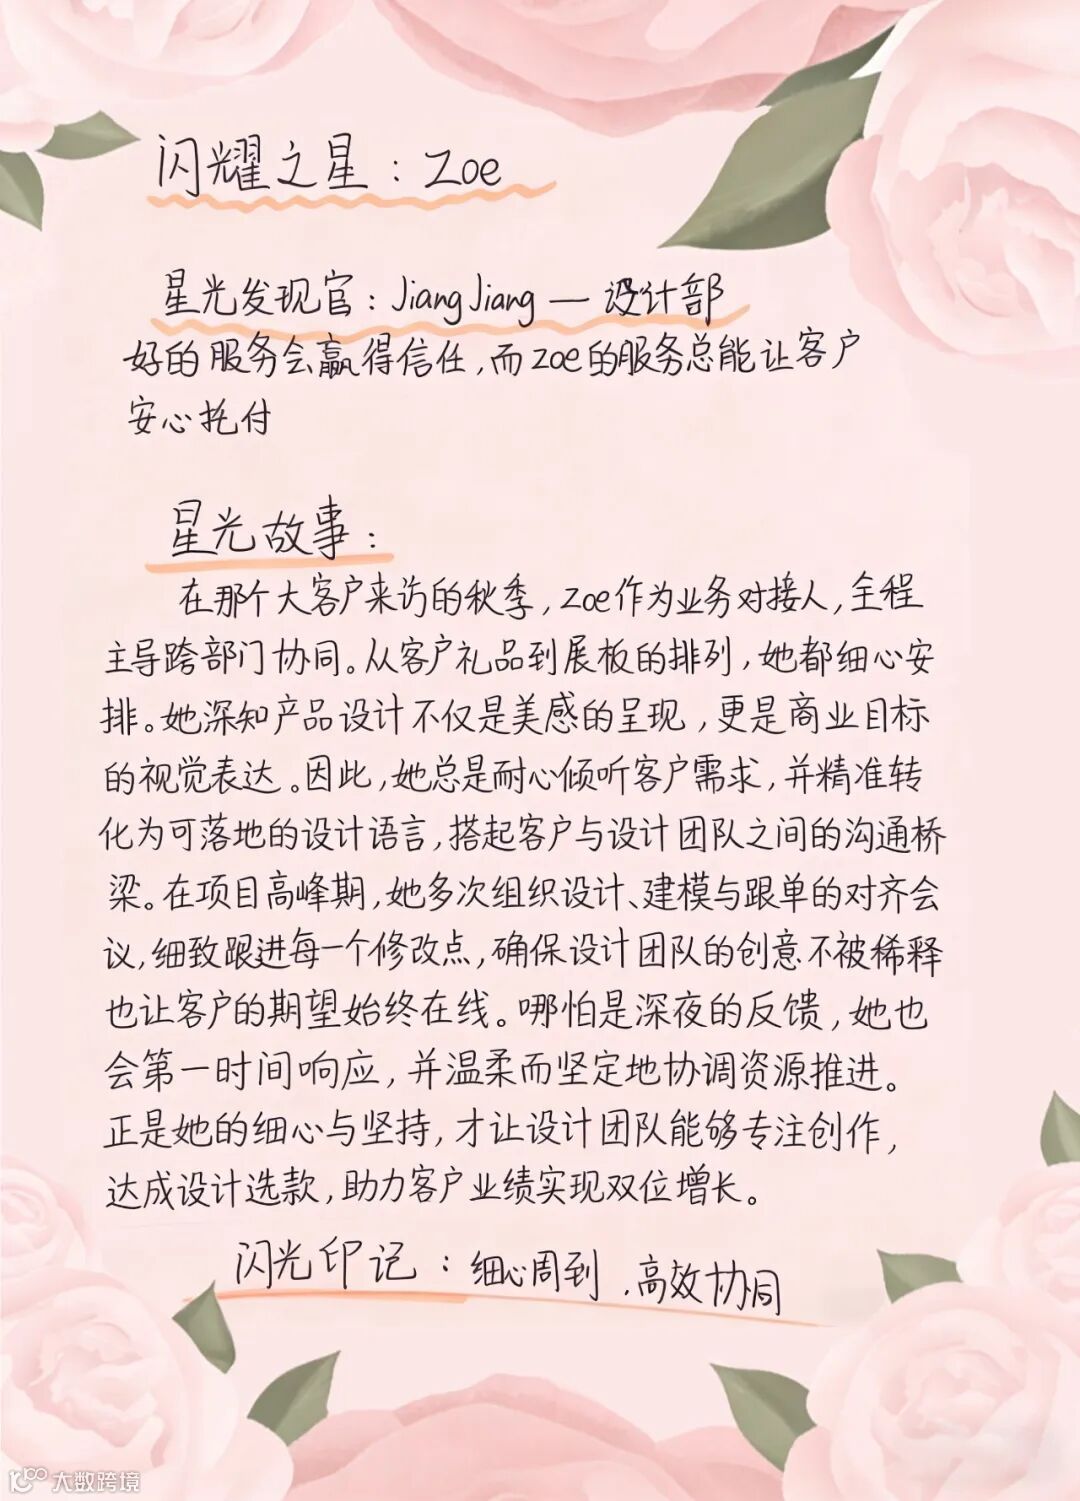 闪耀之星：Zoe
星光发现官：JiangJiang — 设计部
好的服务会赢得信任，而zoe的服务总能让客户
安心托付
星光故事：
在那个大客户来访的秋季，zoe作为业务对接人，全程
主导跨部门协同。从客户礼品到展板的排列，她都细心安
排。她深知产品设计不仅是美感的呈现，更是商业目标
的视觉表达。因此，她总是耐心倾听客户需求，并精准转
化为可落地的设计语言，搭起客户与设计团队之间的沟通桥
梁。在项目高峰期，她多次组织设计、建模与跟单的对齐会
议，细致跟进每一个修改点，确保设计团队的创意不被稀释
也让客户的期望始终在线。哪怕是深夜的反馈，她也
会第一时间响应，并温柔而坚定地协调资源推进。
正是她的细心与坚持，才让设计团队能够专注创作，
达成设计选款，助力客户业绩实现双位增长。
闪光印记：细心周到，高效协同
大数跨境